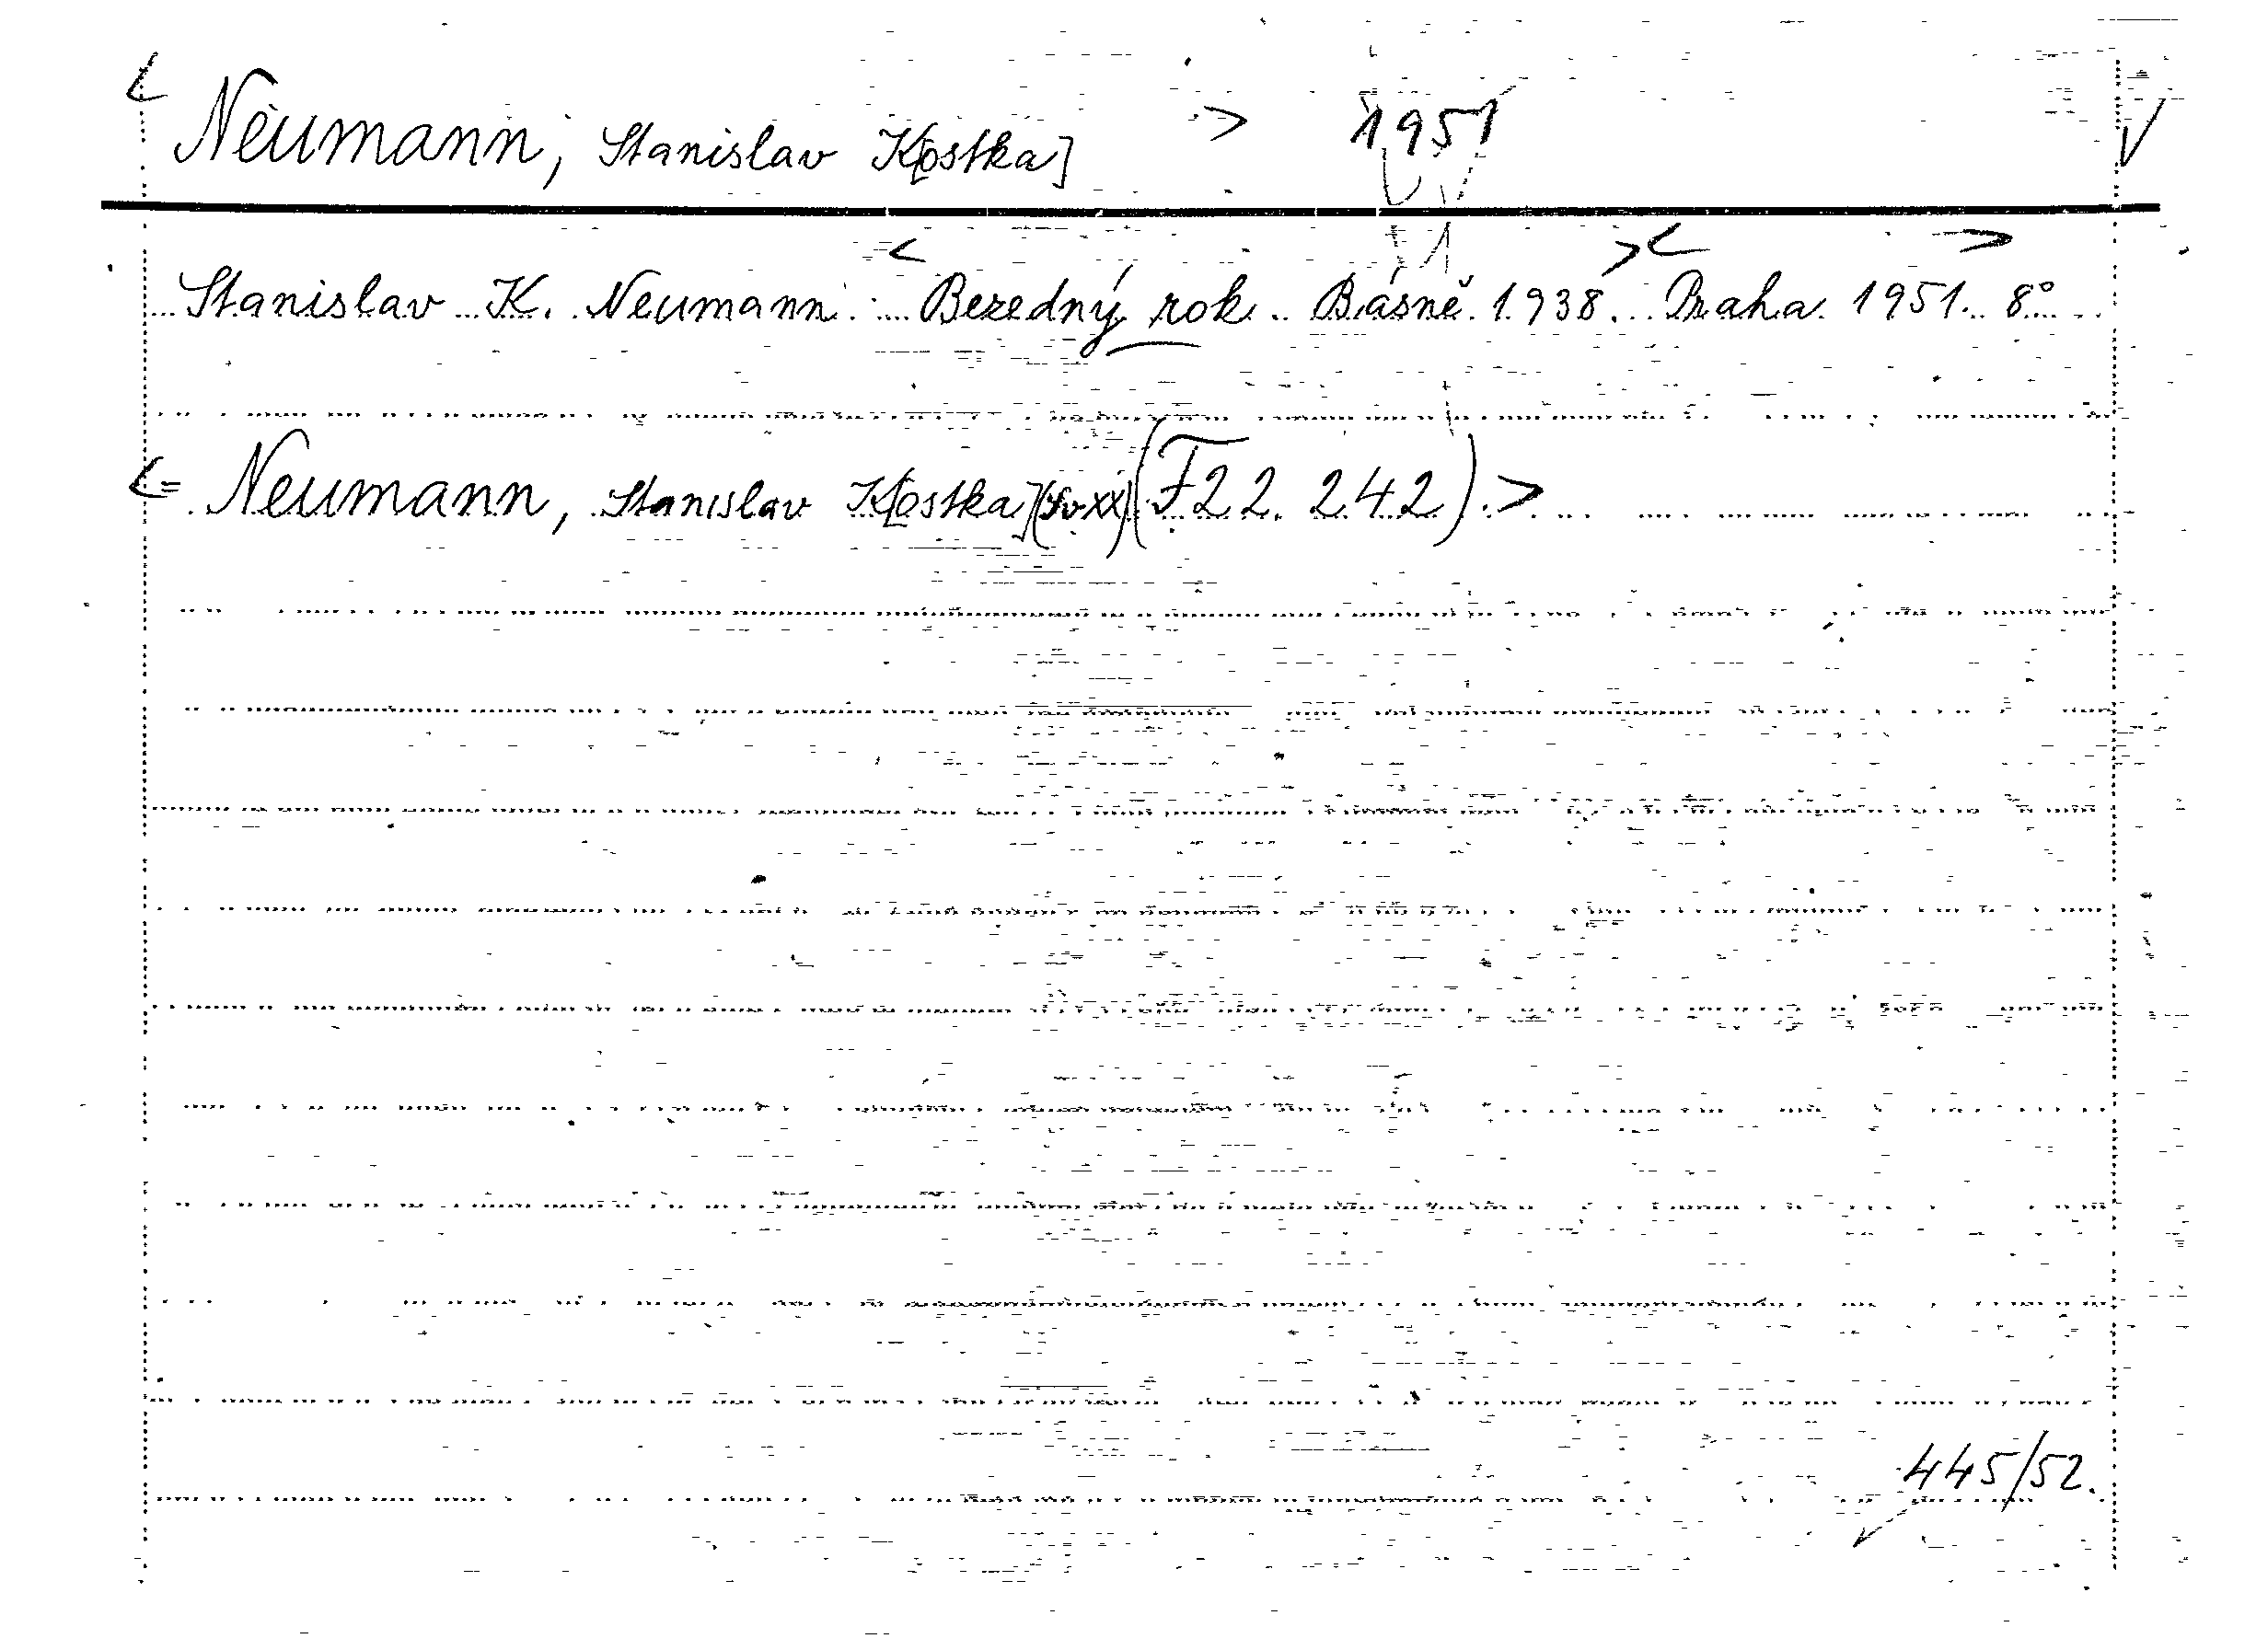 < Neumann, Stanislav K[ostka] > 1951 √
Stanislav K. Neumann: < Bezedný rok. Básně 1938. >< Praha 1951. > 8°
<= Neumann, Stanislav K[ostka] (Sv. XX) (F 22. 242). >
445/52.